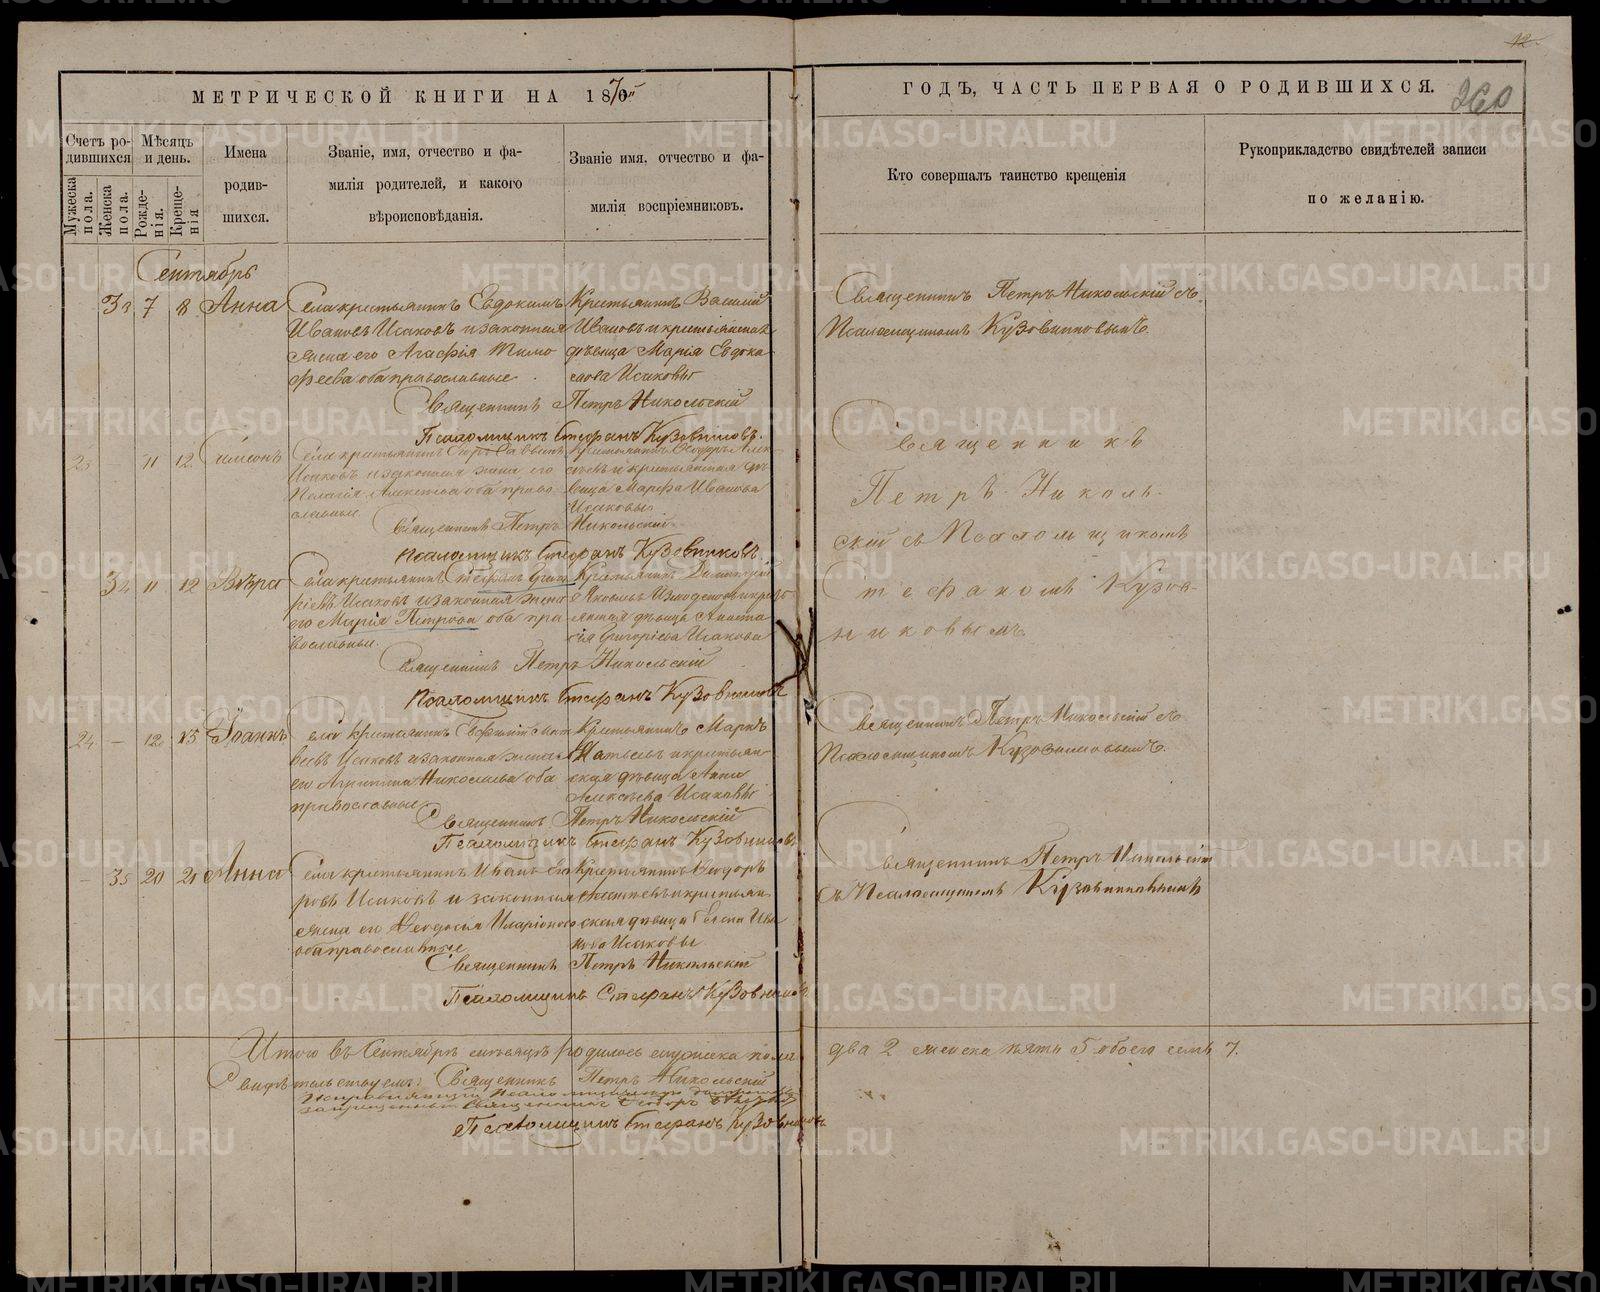 12.
МЕТРИЧЕСКОЙ КНИГИ НА 1870
ГОДЪ, ЧАСТЬ ПЕРВАЯ О РОДИВШИХСЯ.
260
Счетъ ро-
дившихся
Мужеска
пола.
Женска
пола.
Мѣсяцъ
и день.
Рожде-
нія.
Креще-
нія
Имена
родив-
шихся.
Званіе, имя, отчество и фа-
милія родителей, и какого
вѣроисповѣданія.
Званіе имя, отчество и фа-
милія воспріемниковъ.
Кто совершалъ таинство крещенія
Рукоприкладство свидѣтелей записи
по желанію.
Сентябрь
7 8 Анна
Села крестьянинъ Евдокимъ
Ивановъ Исаковъ и законная
жена его Агафія Тимо
феева оба православные
Крестьянинъ Василій
Ивановъ и крестьянская
дѣвица Марія Евдоки
мова Исаковы
Священникъ Петръ Никольскій съ
Псаломщикомъ Кузовниковымъ.
Священникъ Петръ Никольскій
Псаломщикъ Стефанъ Кузовниковъ.
23 — 11 12 Симеонъ
Села крестьянинъ Савинъ
Исаковъ и законная жена его
Пелагія Алексѣева оба право
славные
Крестьянинъ Ѳеодоръ Алек
сѣевъ и крестьянская дѣ
вица Марѳа Иванова
Исаковы
Священникъ
Петръ Николь-
скій съ Псаломщикомъ
Стефаномъ Кузов-
никовымъ
Священникъ Петръ Никольскій
Псаломщикъ Стефанъ Кузовниковъ.
34 11 12 Вѣра
Села крестьянинъ Стефанъ Григо
ріевъ Исаковъ и законная жена
его Марія Петрова оба пра
вославные
Крестьянинъ Димитрій
Яковлевъ и кресть
янская дѣвица Анаста
сія Григоріева Исакова
Священникъ Петръ Никольскій
Псаломщикъ Стефанъ Кузовниковъ
24 — 12 13 Іоаннъ
Села крестьянинъ
Исаковъ и законная жена
его Агрипина Николаева оба
православные
Крестьянинъ Маркъ
и крестьян-
ская дѣвица Анна
Алексѣева Исаковы
Священникъ Петръ Никольскій съ
Псаломщикомъ Кузовниковымъ.
Священникъ Петръ Никольскій
Псаломщикъ Стефанъ Кузовниковъ
— 35 20 21 Анна
Села крестьянинъ Иванъ
ровъ Исаковъ и законная
жена его Ѳеодосія Иларіонова
оба православные
Крестьянинъ Ѳеодоръ
и крестьян
ская дѣвица Елена
Исаковы
Священникъ Петръ Никольскій
съ Псаломщикомъ Кузовниковымъ
Священникъ Петръ Никольскій
Псаломщикъ Стефанъ Кузовниковъ
Итого въ Сентябрѣ мѣсяцѣ родилось мужеска пола два 2 женска пять 5 обоего семь 7.
Свидѣтельствуемъ: Священникъ Петръ Никольскій
Псаломщикъ Стефанъ Кузовниковъ
METRIKI.GASO-URAL.RU